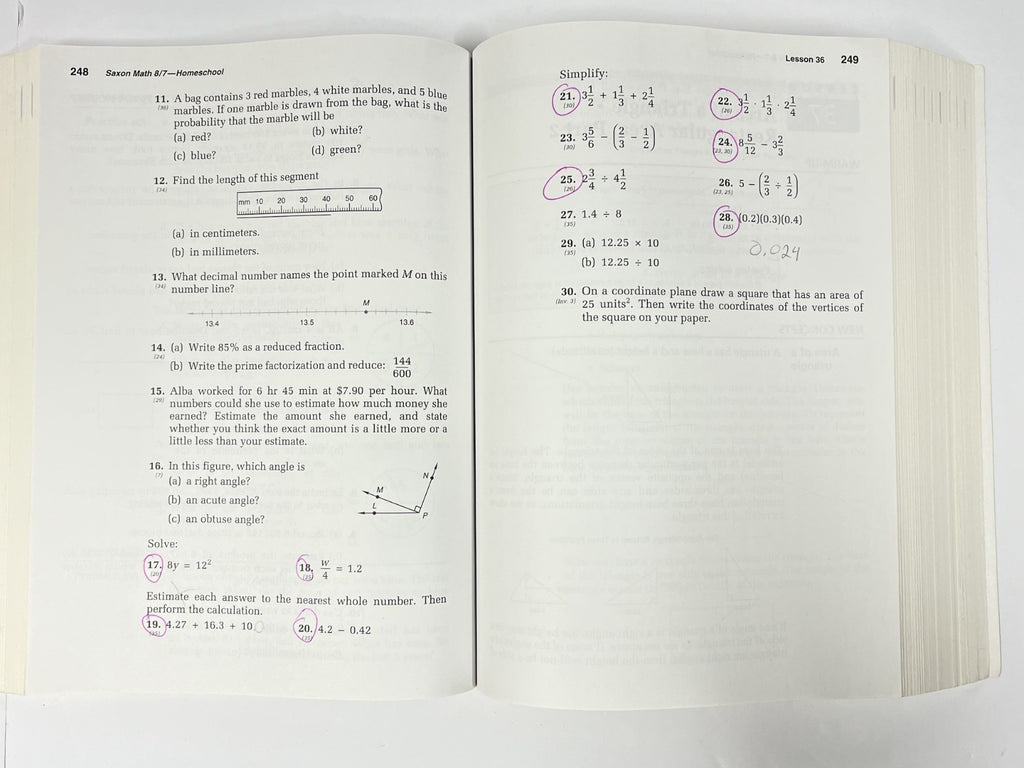 248 Saxon Math 8/7—Homeschool
11. A bag contains 3 red marbles, 4 white marbles, and 5 blue
(36) marbles. If one marble is drawn from the bag, what is the
probability that the marble will be
(a) red? (b) white?
(c) blue? (d) green?
12. Find the length of this segment
(34)
mm 10 20 30 40 50 60
(a) in centimeters.
(b) in millimeters.
13. What decimal number names the point marked M on this
(34) number line?
M
13.4 13.5 13.6
14. (a) Write 85% as a reduced fraction.
(24)
(b) Write the prime factorization and reduce: 144/600
15. Alba worked for 6 hr 45 min at $7.90 per hour. What
(29) numbers could she use to estimate how much money she
earned? Estimate the amount she earned, and state
whether you think the exact amount is a little more or a
little less than your estimate.
16. In this figure, which angle is
(7) (a) a right angle?
(b) an acute angle?
(c) an obtuse angle?
N
M
L
P
Solve:
17. 8y = 12²
(20)
18. w/4 = 1.2
(35)
Estimate each answer to the nearest whole number. Then
perform the calculation.
19. 4.27 + 16.3 + 10.0
(35)
20. 4.2 − 0.42
(35)
Lesson 36 249
Simplify:
21. 3 1/2 + 1 1/3 + 2 1/4
(30)
22. 3 1/2 · 1 1/3 · 2 1/4
(26)
23. 3 5/6 − (2/3 − 1/2)
(30)
24. 8 5/12 − 3 2/3
(23, 30)
25. 2 3/4 ÷ 4 1/2
(26)
26. 5 − (2/3 ÷ 1/2)
(23, 25)
27. 1.4 ÷ 8
(35)
28. (0.2)(0.3)(0.4)
(35)
0.024
29. (a) 12.25 × 10
(35)
(b) 12.25 ÷ 10
30. On a coordinate plane draw a square that has an area of
(Inv. 3) 25 units². Then write the coordinates of the vertices of
the square on your paper.